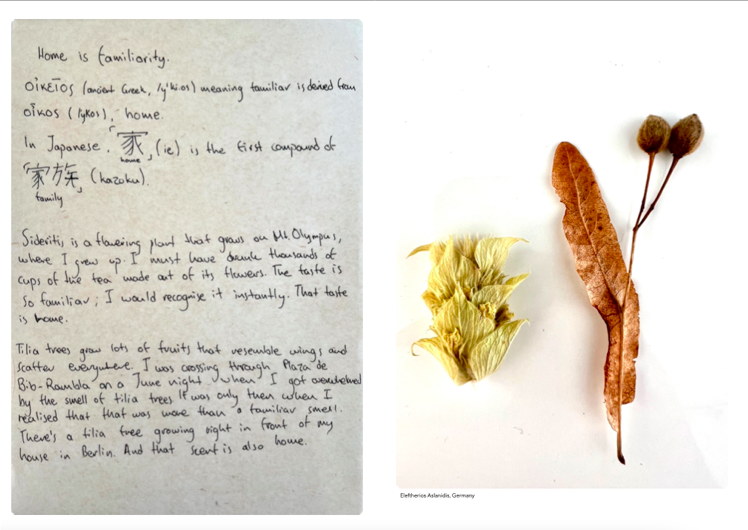 Home is familiarity.
οἰκεῖος (ancient Greek, /y'kios) meaning familiar is derived from
οἶκος (/ykos), home.
In Japanese, 「家」 (ie) is the first compound of
home
「家族」 (kazoku).
family
Sideritis is a flowering plant that grows on Mt. Olympus,
where I grew up. I must have drunk thousands of
cups of the tea made out of its flowers. The taste is
so familiar; I would recognise it instantly. That taste
is home.
Tilia trees grow lots of fruits that resemble wings and
scatter everywhere. I was crossing through Plaza de
Bib-Rambla on a June night when I got overwhelmed
by the smell of tilia trees. It was only then when I
realised that that was more than a familiar smell.
There's a tilia tree growing right in front of my
house in Berlin. And that scent is also home.
Eleftherios Aslanidis, Germany